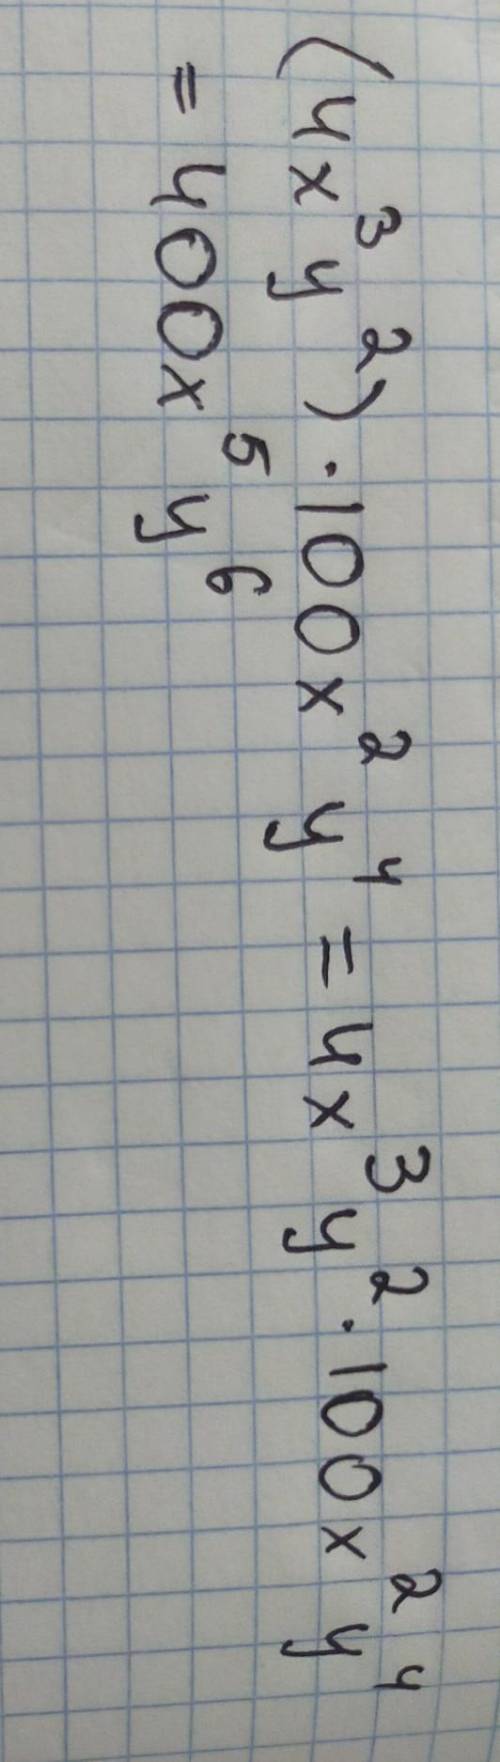 (4x³y²)·100x²y⁴ = 4x³y²·100x²y⁴
= 400x⁵y⁶